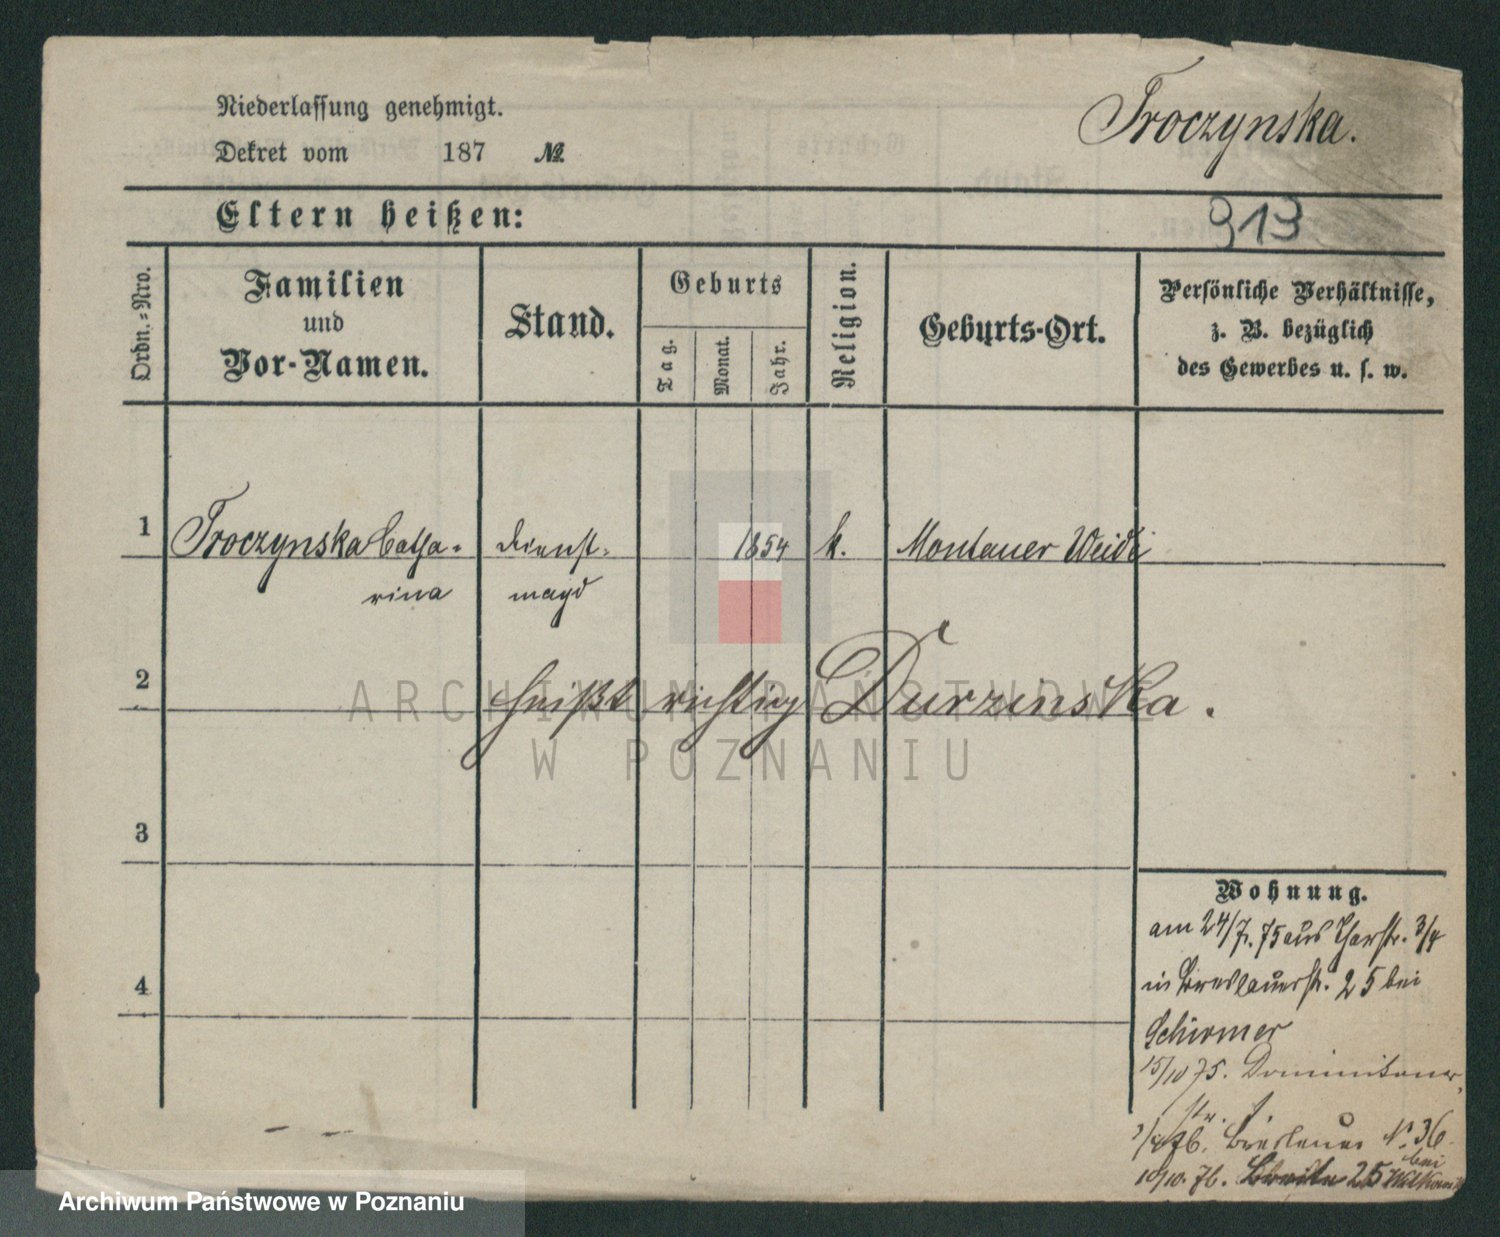 Niederlassung genehmigt.
Troczynska.
Dekret vom 187 №
Eltern heißen:
913
Ordn.-Nro.
Familien
und
Vor-Namen.
Stand.
Geburts
Tag.
Monat.
Jahr.
Religion.
Geburts-Ort.
Persönliche Verhältnisse,
z. B. bezüglich
des Gewerbes u. s. w.
1 Troczynska Catha- Dienst- 1854 k. Montauer Weide
rina magd
2 heißt richtig Durzinska.
ARCHIWUM PAŃSTWOWE
W POZNANIU
3
Wohnung.
am 24/7. 75 aus Thorstr. 3/4
4
in Breslauerstr. 25 bei
Schirmer
15/10 75. Dominikaner
str.
76. Breslauer № 36
bei
10/10. 76. Breite 25
Archiwum Państwowe w Poznaniu